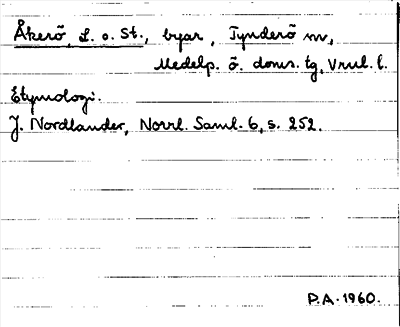 Åkerö, L. o. St., byar, Tynderö sn,
Medelp. ö. doms. tg, Vnul. l.
Etymologi.
J. Nordlander, Norrl. Saml. 6, s. 252.
P.A. 1960.